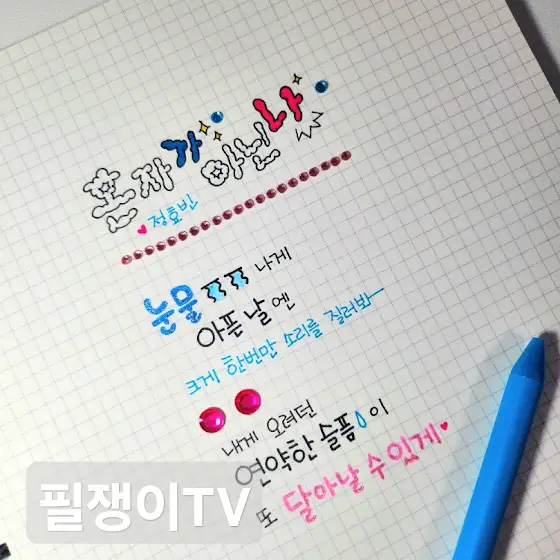 혼자가 아닌 나
정효빈
눈물 ㅠㅠ 나게
아픈 날엔
크게 한번만 소리를 질러봐~
내게 오려던
연약한 슬픔이
또 달아날 수 있게
필쟁이TV